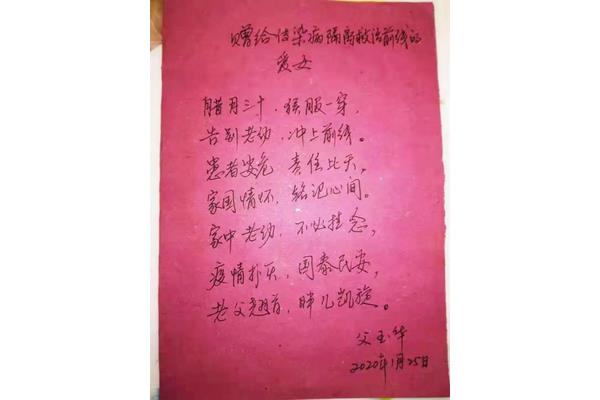 赠给传染病隔离救治前线的
爱女
腊月三十，猴服一穿，
告别老幼，冲上前线。
患者安危 责任比天，
家国情怀，铭记心间。
家中老幼，不必挂念，
疫情扑灭，国泰民安，
老父翘首，盼儿凯旋。
父玉华
2020年1月25日